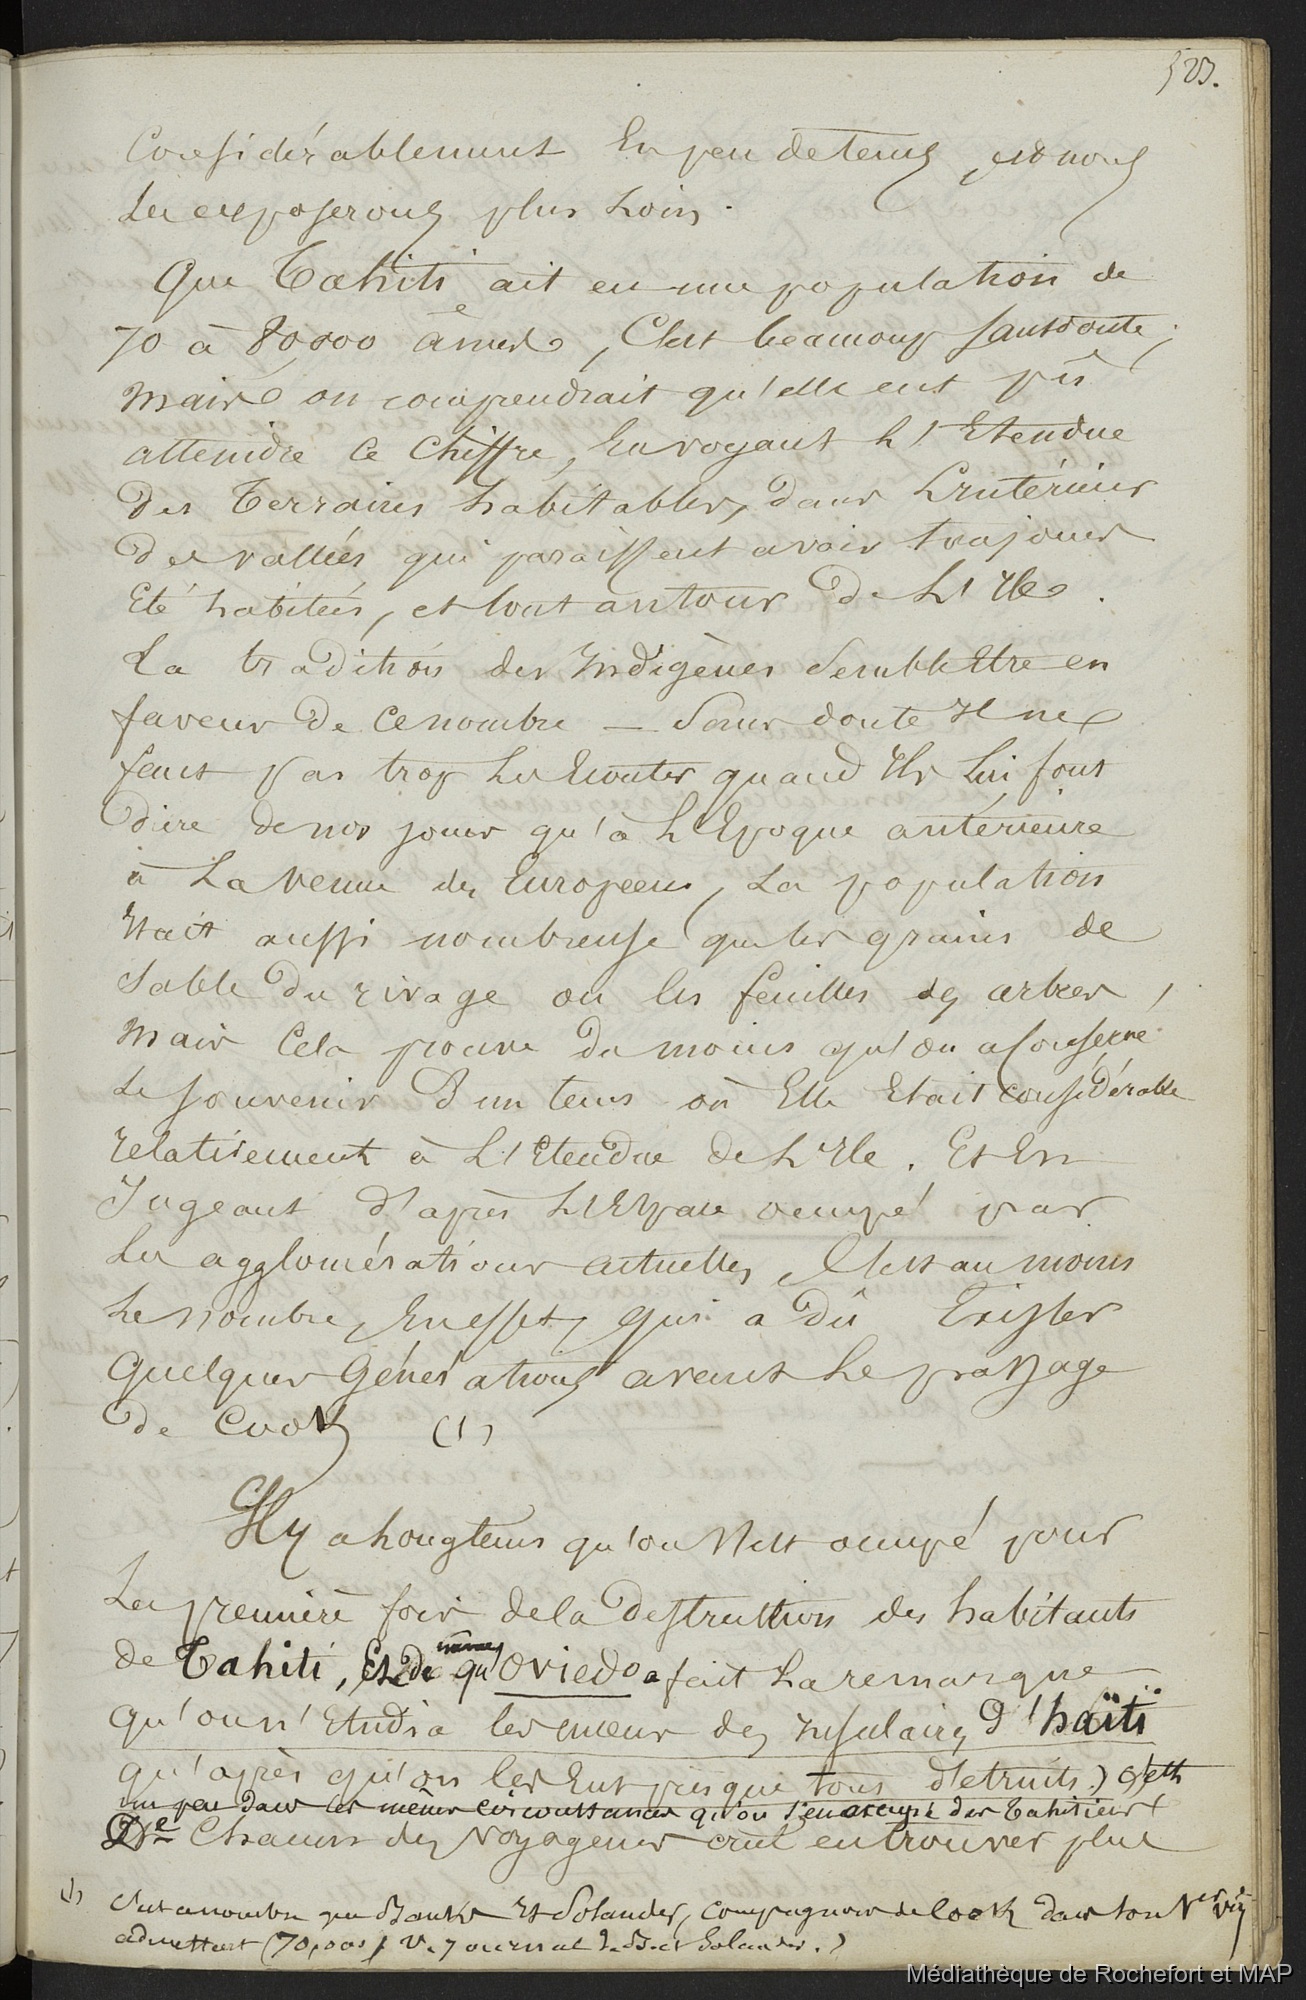 523.
Considérablement En peu de tems, et nous
Les exposerons plus Loin.
Que Tahiti ait eu une population de
70 à 80,000 âmes, C'est beaucoup sans doute;
Mais on comprendrait qu'elle eut pû
atteindre Ce Chiffre, En voyant L'Etendue
Des Terrains habitables, dans L'intérieur
De vallées qui paraissent avoir toujours
Eté habitées, et tout autour De L'Ile.
La tradition des Indigènes Semble Etre en
faveur De Ce nombre — Sans doute Il ne
faut pas trop Les Ecouter quand Ils Lui font
Dire de nos jours qu'à L'Epoque antérieure
à La Venue des Européens, La population
Etait aussi nombreuse que les grains de
Sable Du rivage ou les feuilles des arbres,
Mais Cela prouve Du moins qu'on a Conservé
Le Souvenir D'un tems où Elle Etait considérable
relativement à L'Etendue de L'Ile. Et En
Jugeant d'après L'Espace occupé par
Les agglomérations actuelles, C'est au moins
Le nombre, En effet, qui a Dû Exister
Quelques Générations avant Le passage
De Cook (1)
Il y a Longtems qu'on s'est occupé pour
La première fois de la Destruction des habitants
de Tahiti, Et De même qu'Oviedo a fait La remarque
qu'on n'Etudia les mœurs des Insulaires d'haïti
qu'après qu'on les Eut presque tous détruits.) C'est
un peu Dans les mêmes circonstances qu'on s'en occupé des Tahitiens (
Chacun des Voyageurs crut en trouver plus
(1) C'est ce nombre que Banks Et Solander, Compagnons de Cook dans son 1er voy.
admettent (70,000) V. Journal de B. et Solander.)
Médiathèque de Rochefort et MAP